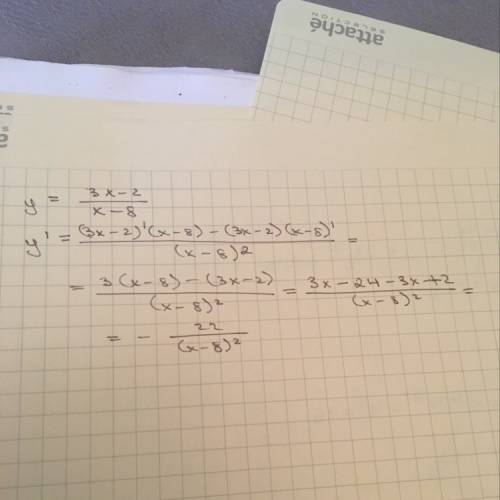 attaché
SELECTION
y = \frac{3x-2}{x-8}
y' = \frac{(3x-2)'(x-8) - (3x-2)(x-8)'}{(x-8)^2} =
= \frac{3(x-8) - (3x-2)}{(x-8)^2} = \frac{3x-24-3x+2}{(x-8)^2} =
= - \frac{22}{(x-8)^2}